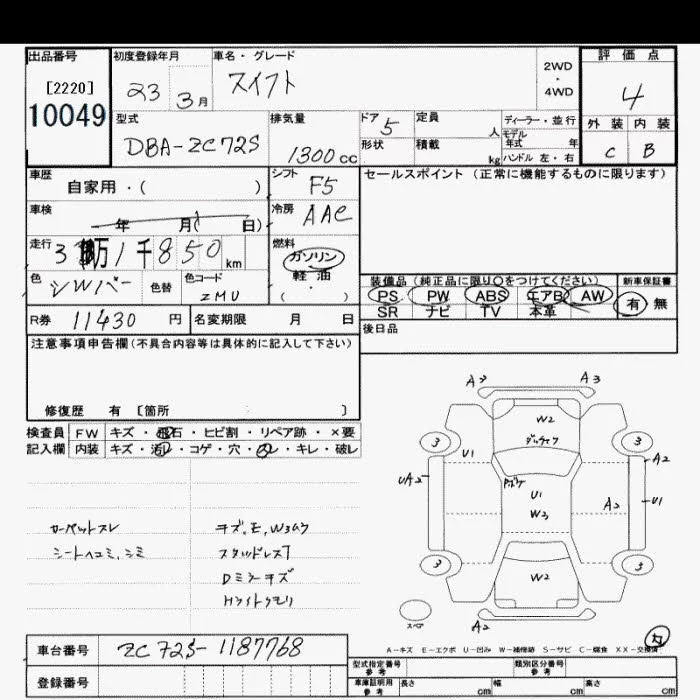 出品番号 初度登録年月 車名・グレード 2WD・4WD 評価点
[2220] 23 3月 スイフト 4
10049 型式 排気量 ドア 5 定員 人 ディーラー・並行
DBA-ZC72S 1300cc 形状 積載 kg モデル年式 年 外装 内装
ハンドル 左・右 C B
車歴 自家用・( ) シフト F5 セールスポイント(正常に機能するものに限ります)
車検 年 月( 日) 冷房 AAC
走行 3万1千850km 燃料 ガソリン
軽・油
・( )
色 シルバー 色替 色コード ZMU 装備品(純正品に限り○をつけてください) 新車保証書
PS PW ABS エアB AW 有 無
SR ナビ TV 本革
R券 11430円 名変期限 月 日 後日品
注意事項申告欄(不具合内容等は具体的に記入して下さい)
修復歴 有 〔箇所 〕
検査員 FW キズ・飛石・ヒビ割・リペア跡・×要
記入欄 内装 キズ・汚レ・コゲ・穴・スレ・キレ・破レ
カーペットスレ
シートヘコミ、シミ
キズ、E、W3ムラ
スタッドレス7
Dミラーキズ
Hライトクモリ
A3 A3
W2
3 3
U1 A2
UA2 U1
W3 A2 U1
3 3
W2
スペア A2
A-キズ E-エクボ U-凹み W-補修跡 S-サビ C-腐食 XX-交換済
車台番号 ZC72S-1187768
登録番号
型式指定番号 参考 類別区分番号 参考
車庫証明用 参考 長さ cm 幅 cm 高さ cm